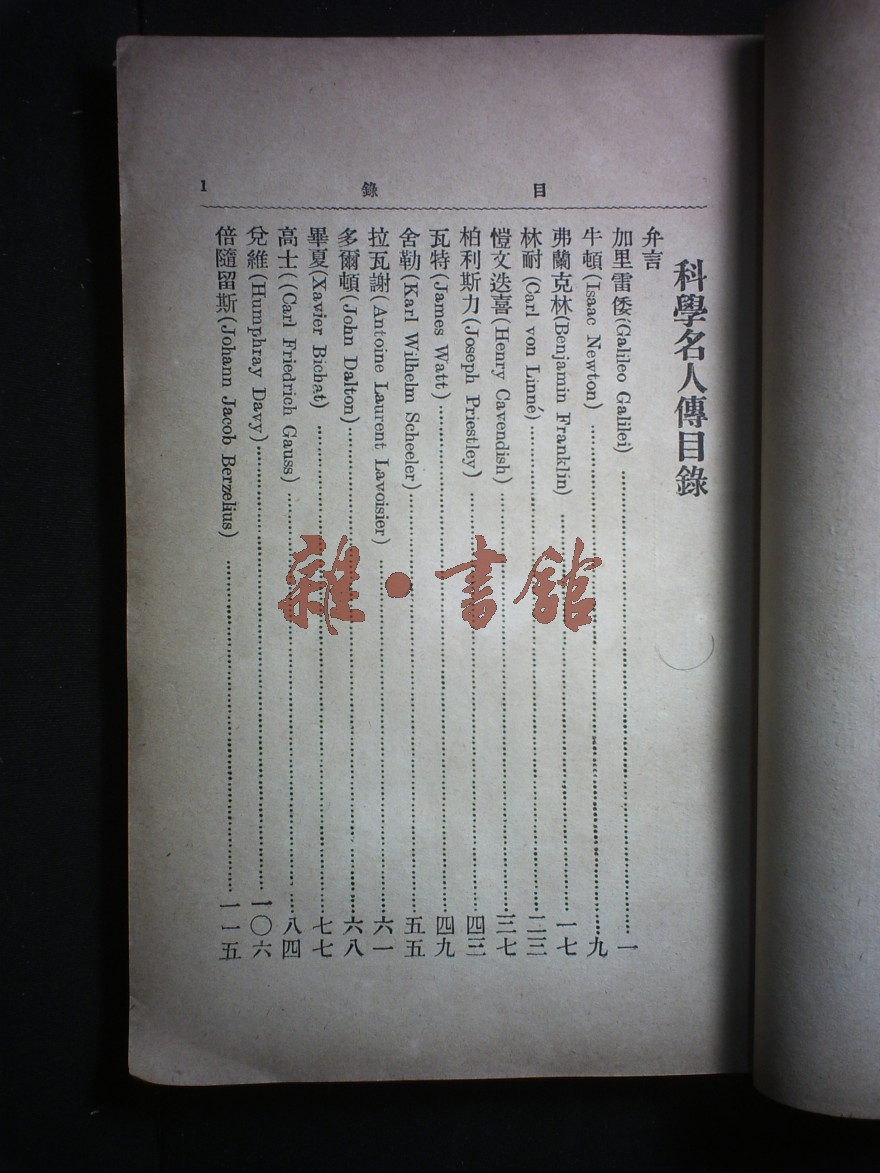 目錄
1
科學名人傳目錄
弁言
加里雷倭(Galileo Galilei)……一
牛頓(Isaac Newton)……九
弗蘭克林(Benjamin Franklin)……一七
林耐(Carl von Linné)……二三
愷文迭喜(Henry Cavendish)……三七
柏利斯力(Joseph Priestley)……四三
瓦特(James Watt)……四九
舍勒(Karl Wilhelm Scheeler)……五五
拉瓦謝(Antoine Laurent Lavoisier)……六一
多爾頓(John Dalton)……六八
畢夏(Xavier Bichat)……七七
高士((Carl Friedrich Gauss)……八四
兌維(Humphray Davy)……一〇六
倍隨留斯(Johann Jacob Berzelius)……一一五
雜·書館